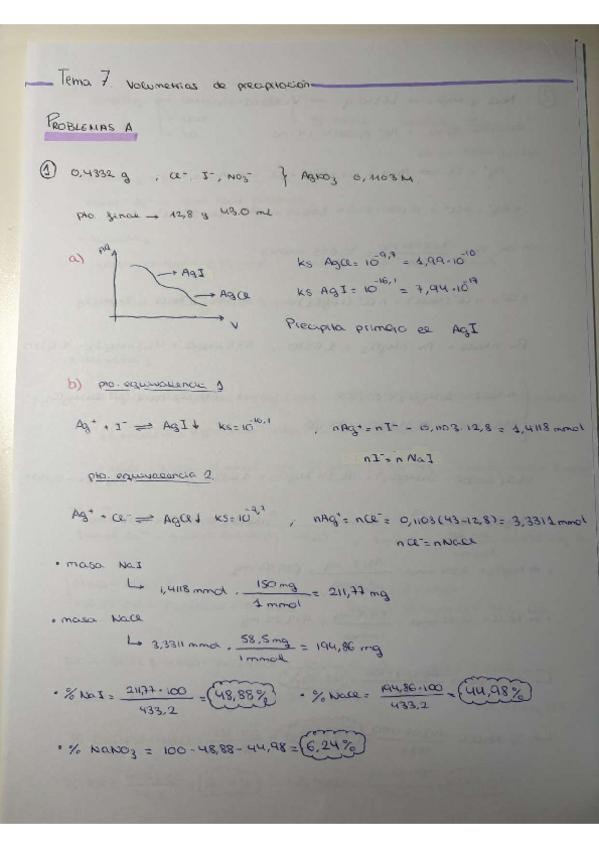 Tema 7 Volumetrias de precipitación
PROBLEMAS A
① 0,4332 g , Cl⁻, I⁻, NO₃⁻ } AgNO₃ 0,1103 M
pto final → 12,8 y 43.0 ml
a) pAg → AgI → AgCl V
ks AgCl = 10^-9,7 = 1,99·10^-10
ks AgI = 10^-16,1 = 7,94·10^-17
Precipita primero el AgI
b) pto. equivalencia 1
Ag⁺ + I⁻ ⇌ AgI↓ ks=10^-16,1 , nAg⁺ = nI⁻ - 0,1103·12,8 = 1,4118 mmol
nI⁻ = n NaI
pto. equivalencia 2
Ag⁺ + Cl⁻ ⇌ AgCl↓ ks=10^-9,7 , nAg⁺ = nCl⁻ = 0,1103(43-12,8) = 3,3311 mmol
nCl⁻ = nNaCl
• masa NaI
↳ 1,4118 mmol · 150 mg / 1 mmol = 211,77 mg
• masa NaCl
↳ 3,3311 mmol · 58,5 mg / 1 mmol = 194,86 mg
• % NaI = 211,77·100 / 433,2 = 48,88% • % NaCl = 194,86·100 / 433,2 = 44,98%
• % NaNO₃ = 100 - 48,88 - 44,98 = 6,24%